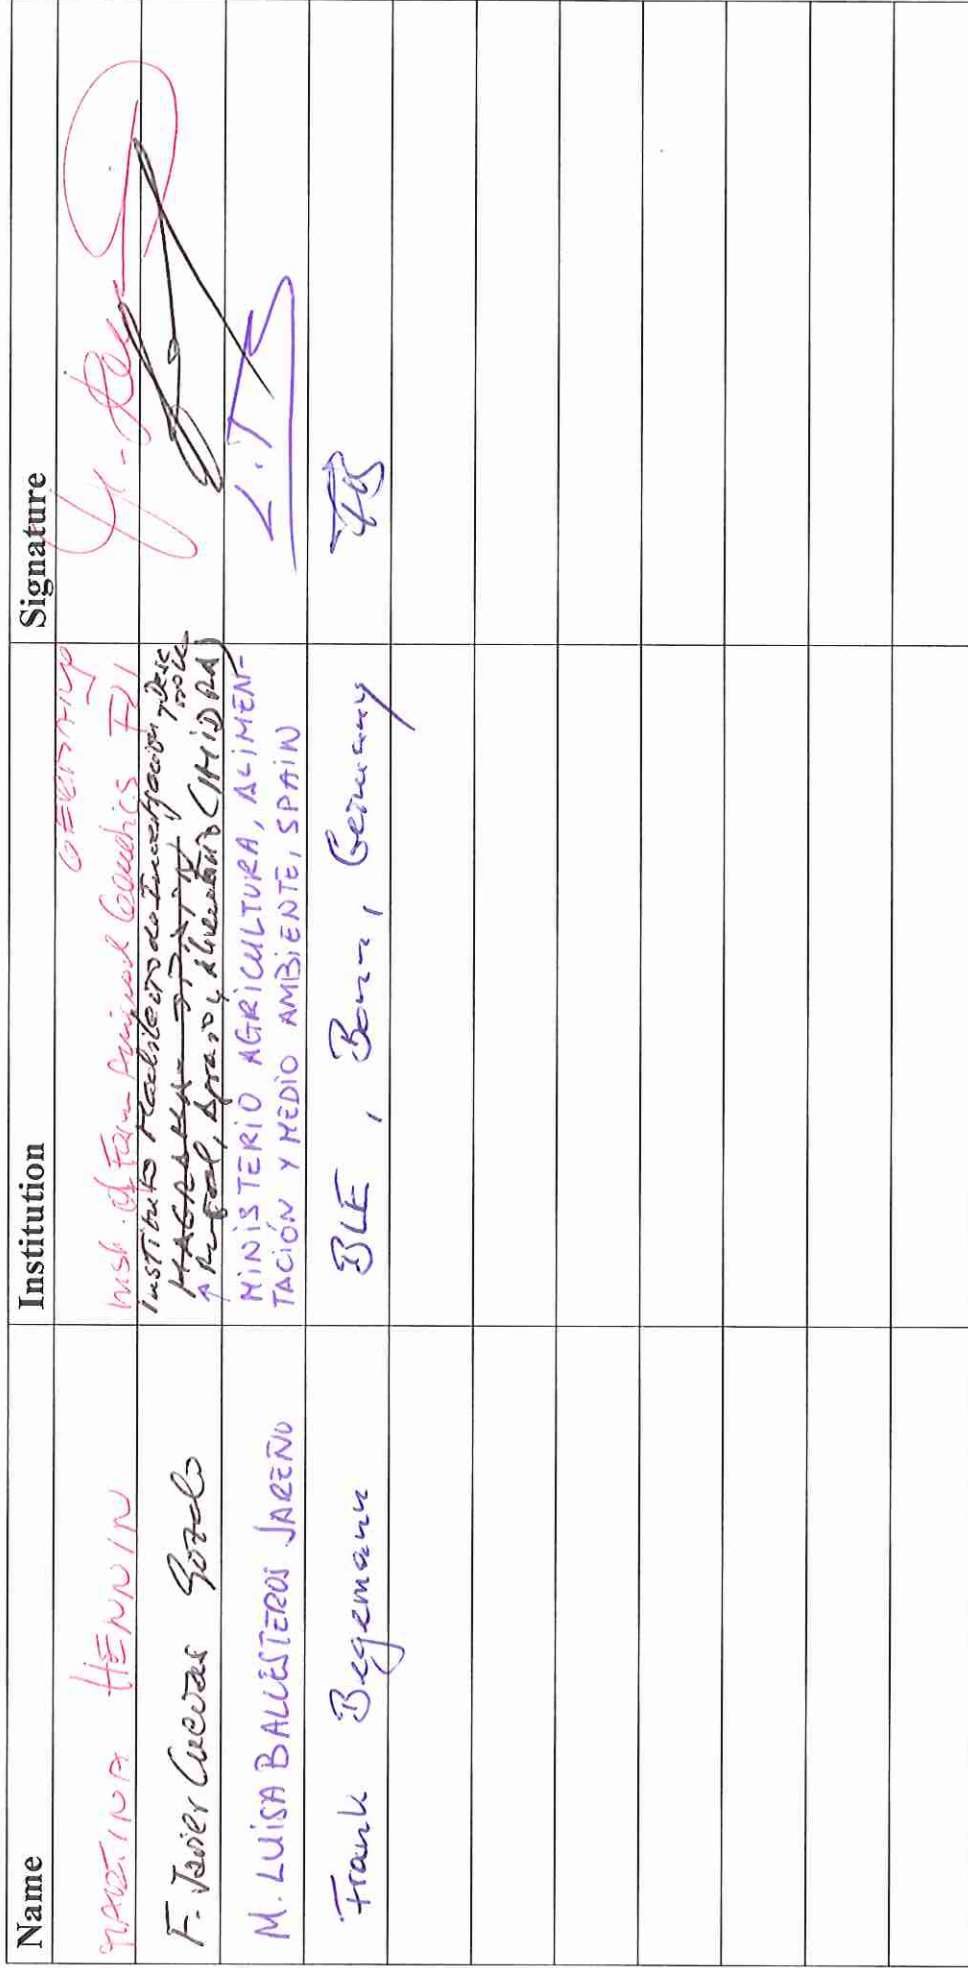 Name Institution Signature
GERMANY
MARTINA HENNIN Inst. of Farm Animal Genetics FLI
Instituto Madrileño de Investigación y
F. Javier Cuevas Gozalo
Rural, Agrario y Alimentario (IMIDRA)
M. LUISA BALLESTEROS JAREÑO MINISTERIO AGRICULTURA, ALIMEN-
TACIÓN Y MEDIO AMBIENTE, SPAIN
Frank Begemann BLE, Bonn, Germany FB